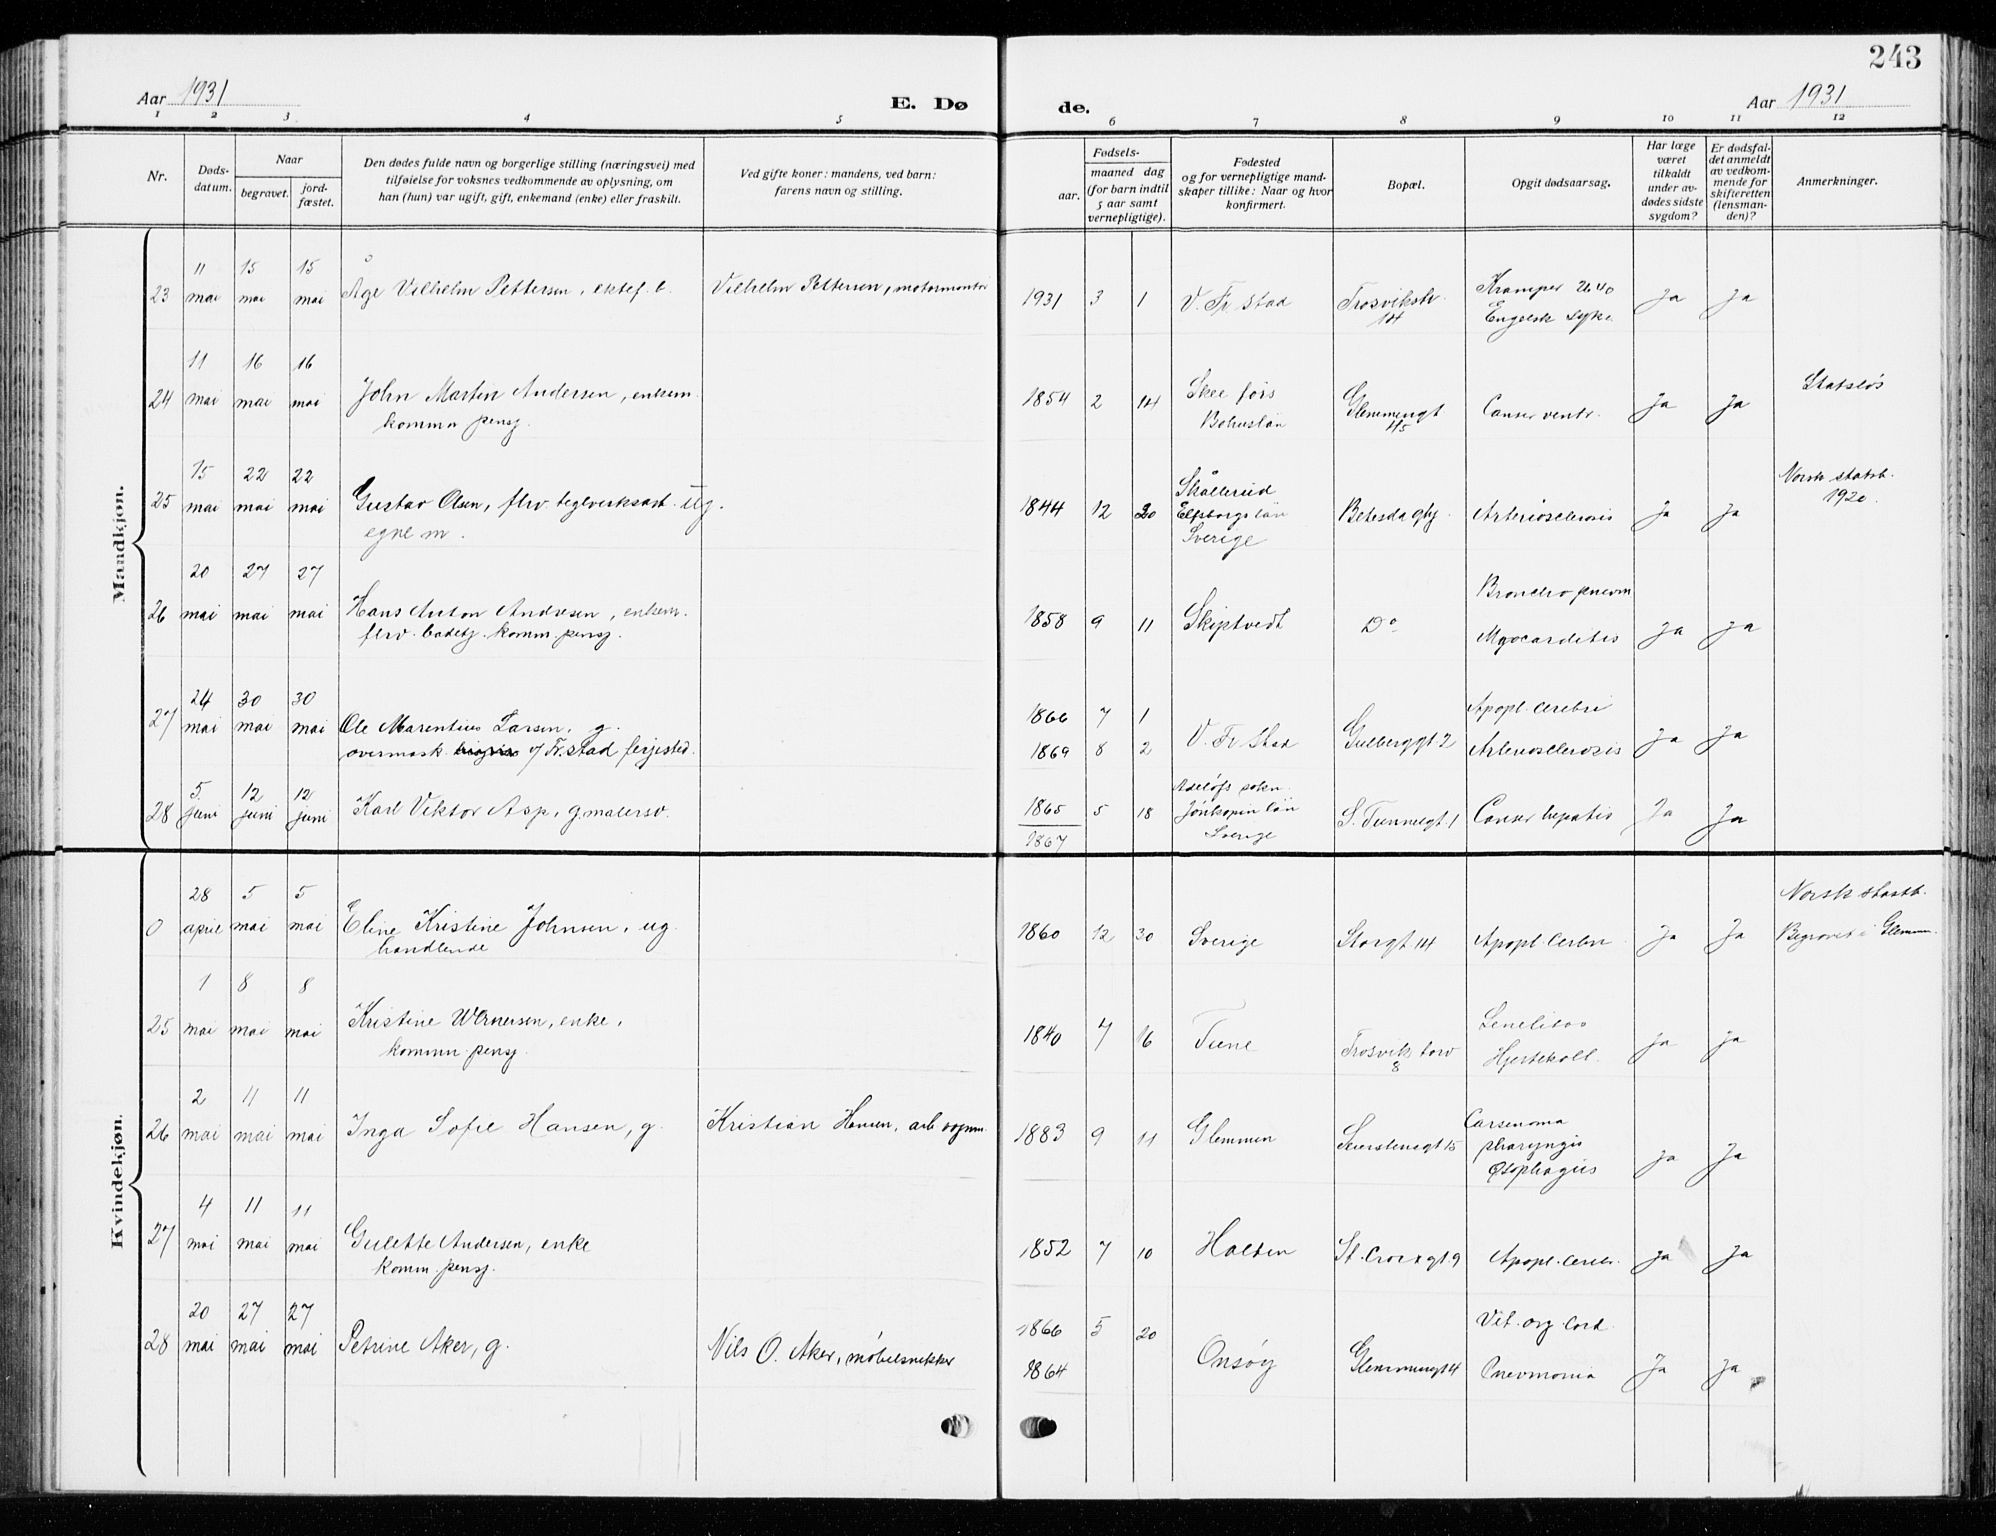 243
Aar 1931
E. Dø
de.
Aar 1931
1 2 3 4 5 6 7 8 9 10 11 12
Nr.
Dødsdatum.
Naar
begravet.
jordfæstet.
Den dødes fulde navn og borgerlige stilling (næringsvei) med
tilføielse for voksnes vedkommende av oplysning, om
han (hun) var ugift, gift, enkemand (enke) eller fraskilt.
Ved gifte koner: mandens, ved barn:
farens navn og stilling.
Fødsels-
aar.
maaned dag
(for barn indtil
5 aar samt
vernepligtige).
Fødested
og for vernepligtige mand-
skaper tillike: Naar og hvor
konfirmert.
Bopæl.
Opgit dødsaarsag.
Har læge
været
tilkaldt
under av-
dødes sidste
sygdom?
Er dødsfal-
det anmeldt
av vedkom-
mende for
skifteretten
(lensman-
den)?
Anmerkninger.
Mandkjøn.
23 11 mai 15 mai 15 mai Åge Vilhelm Pettersen, ektef. b. Vilhelm Pettersen, motormontør 1931 3 1 V. Fr.stad Trosvikstr. 14 Kramper
Engelsk syke Ja Ja
24 11 mai 16 mai 16 mai John Martin Andersen, enkem.
komm. pensj. 1854 2 14 Skee førs
Bohuslän Glemmengt 45 Canser ventr. Ja Ja Statsløs
25 15 mai 22 mai 22 mai Gustav Olsen, flrv. teglverksarb. ug.
egne m. 1844 12 20 Skållerud
Elfsborgs län
Sverige Betesda glhj. Arteriosclerosis Ja Ja Norsk statsb.
1920.
26 20 mai 27 mai 27 mai Hans Anton Andresen, enkem.
flrv. badebtj. komm. pensj. 1858 9 11 Skiptvedt Do Broncho pnevm
Myocarditis Ja Ja
27 24 mai 30 mai 30 mai Ole Marentius Larsen, g.
overmask. v/ Fr.stad ferjested. 1866 7 1
1869 8 2 V. Fr.stad Gulberggt 2 Apopl. cerebri
Arteriosclerosis Ja Ja
28 5. juni 12 juni 12 juni Karl Viktor Asp, g. malersv. 1865 5 18
1867 Adelöfs sokn.
Jönkopin län
Sverige S. Tunnelgt. 1 Canser hepatis Ja Ja
Kvindekjøn.
0 28 april 5 mai 5 mai Eline Kristine Johnsen, ug.
handlende 1860 12 30 Sverige Storgt 14 Apopl. cerebri Ja Ja Norsk statsb.
Begravet i Glemmen.
25 1 mai 8 mai 8 mai Kristine Wernersen, enke,
komm. pensj. 1840 7 16 Tune Trosvik torv 8 Senilitas
Hjertekoll. Ja Ja
26 2 mai 11 mai 11 mai Inga Sofie Hansen, g. Kristian Hansen, arb vognm. 1883 9 11 Glemmen Seierstensgt 15 Carsenoma
pharyngis
øsophagus Ja Ja
27 4 mai 11 mai 11 mai Gulette Andersen, enke
komm. pensj. 1852 7 10 Halden St. Croixgt. 9 Apopl. cerebr. Ja Ja
28 20 mai 27 mai 27 mai Petrine Aker, g. Nils O. Aker, møbelsnekker 1866 5 20
1864 Onsøy Glemmengt 4 Vit. org. cord.
Pnevmonia Ja Ja